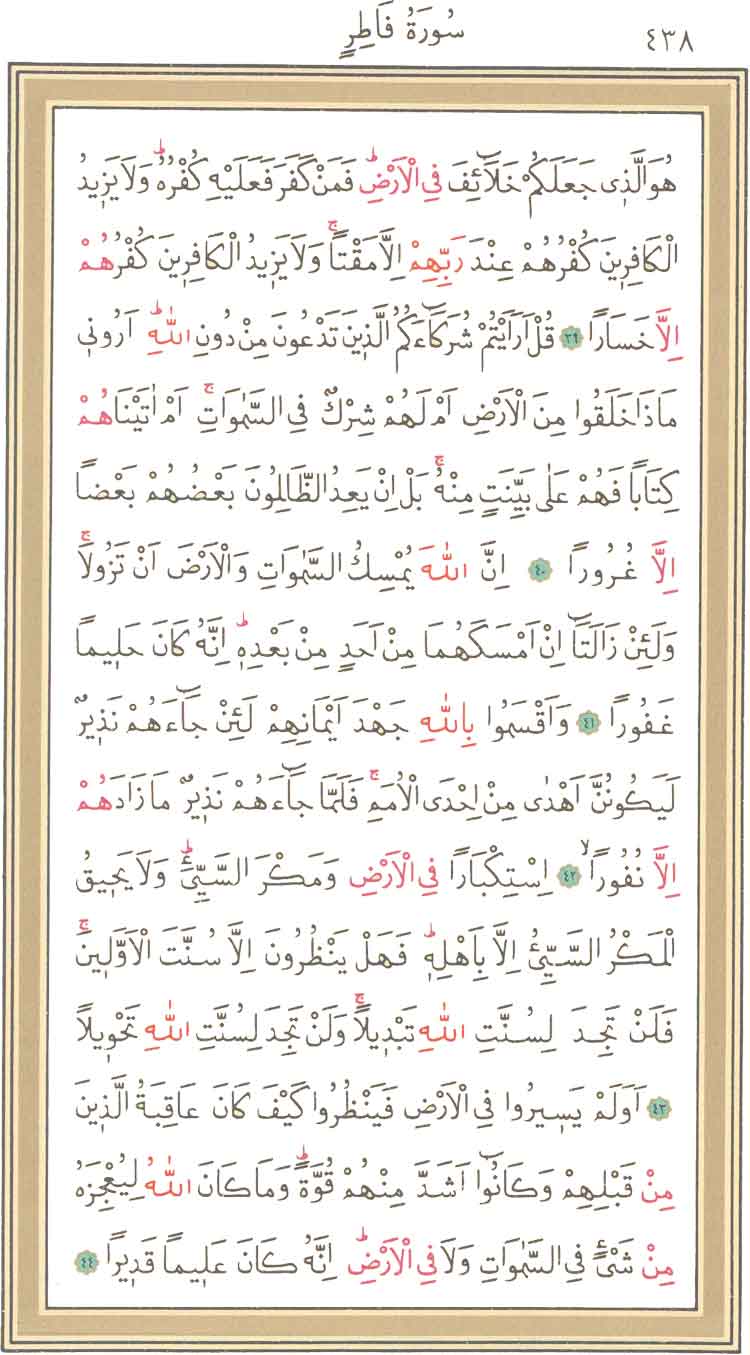 ٤٣٨ سُورَةُ فَاطِرٍ
هُوَ الَّذ۪ي جَعَلَكُمْ خَلَٓائِفَ فِي الْاَرْضِۜ فَمَنْ كَفَرَ فَعَلَيْهِ كُفْرُهُۜ وَلَا يَز۪يدُ
الْكَافِر۪ينَ كُفْرُهُمْ عِنْدَ رَبِّهِمْ اِلَّا مَقْتاًۚ وَلَا يَز۪يدُ الْكَافِر۪ينَ كُفْرُهُمْ
اِلَّا خَسَاراً ٣٩ قُلْ اَرَاَيْتُمْ شُرَكَٓاءَكُمُ الَّذ۪ينَ تَدْعُونَ مِنْ دُونِ اللّٰهِۜ اَرُون۪ي
مَاذَا خَلَقُوا مِنَ الْاَرْضِ اَمْ لَهُمْ شِرْكٌ فِي السَّمٰوَاتِۚ اَمْ اٰتَيْنَاهُمْ
كِتَاباً فَهُمْ عَلٰى بَيِّنَتٍ مِنْهُۚ بَلْ اِنْ يَعِدُ الظَّالِمُونَ بَعْضُهُمْ بَعْضاً
اِلَّا غُرُوراً ٤٠ اِنَّ اللّٰهَ يُمْسِكُ السَّمٰوَاتِ وَالْاَرْضَ اَنْ تَزُولَاۚ
وَلَئِنْ زَالَتَٓا اِنْ اَمْسَكَهُمَا مِنْ اَحَدٍ مِنْ بَعْدِه۪ۜ اِنَّهُ كَانَ حَل۪يماً
غَفُوراً ٤١ وَاَقْسَمُوا بِاللّٰهِ جَهْدَ اَيْمَانِهِمْ لَئِنْ جَٓاءَهُمْ نَذ۪يرٌ
لَيَكُونُنَّ اَهْدٰى مِنْ اِحْدَى الْاُمَمِۚ فَلَمَّا جَٓاءَهُمْ نَذ۪يرٌ مَا زَادَهُمْ
اِلَّا نُفُوراًۙ ٤٢ اِسْتِكْبَاراً فِي الْاَرْضِ وَمَكْرَ السَّيِّئِۜ وَلَا يَح۪يقُ
الْمَكْرُ السَّيِّئُ اِلَّا بِاَهْلِه۪ۜ فَهَلْ يَنْظُرُونَ اِلَّا سُنَّتَ الْاَوَّل۪ينَۚ
فَلَنْ تَجِدَ لِسُنَّتِ اللّٰهِ تَبْد۪يلاًۚ وَلَنْ تَجِدَ لِسُنَّتِ اللّٰهِ تَحْو۪يلاً
٤٣ اَوَلَمْ يَس۪يرُوا فِي الْاَرْضِ فَيَنْظُرُوا كَيْفَ كَانَ عَاقِبَةُ الَّذ۪ينَ
مِنْ قَبْلِهِمْ وَكَانُٓوا اَشَدَّ مِنْهُمْ قُوَّةًۜ وَمَا كَانَ اللّٰهُ لِيُعْجِزَهُ
مِنْ شَيْءٍ فِي السَّمٰوَاتِ وَلَا فِي الْاَرْضِۜ اِنَّهُ كَانَ عَل۪يماً قَد۪يراً ٤٤